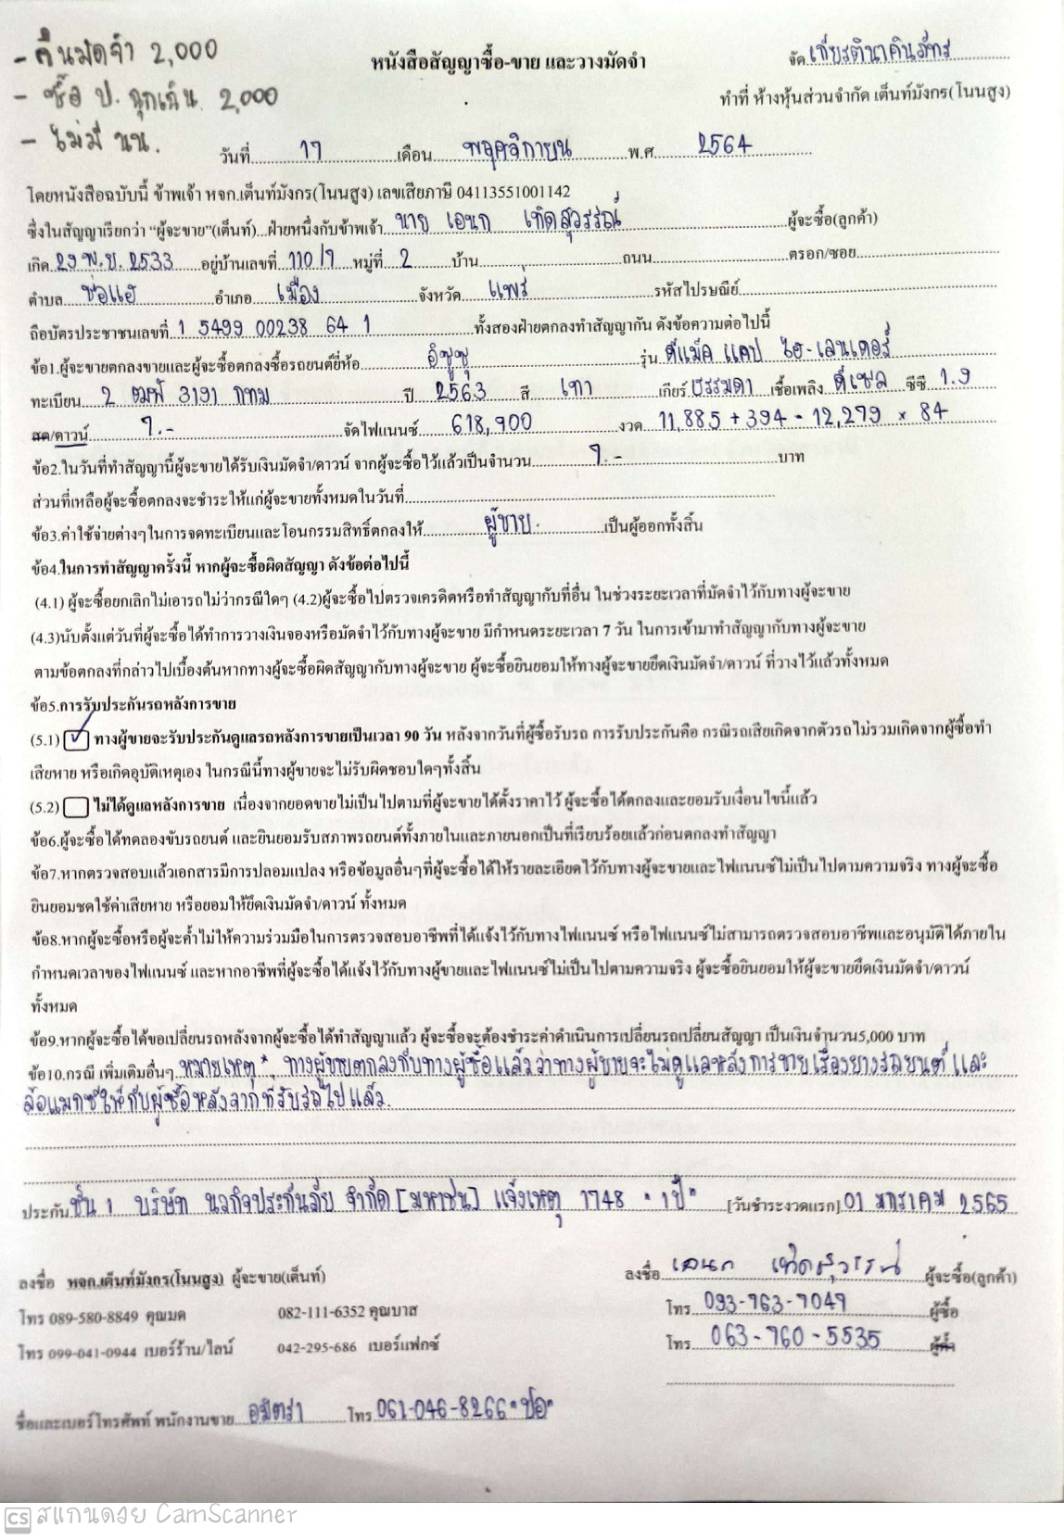 - คืนมัดจำ 2,000
- ซื้อ ป. ฉุกเฉิน 2,000
- ไม่มี นน.
หนังสือสัญญาซื้อ-ขาย และวางมัดจำ
จัด เกียรตินาคินภัทร
ทำที่ ห้างหุ้นส่วนจำกัด เต็นท์มังกร(โนนสูง)
วันที่ 17 เดือน พฤศจิกายน พ.ศ. 2564
โดยหนังสือฉบับนี้ ข้าพเจ้า หจก.เต็นท์มังกร(โนนสูง) เลขเสียภาษี 04113551001142
ซึ่งในสัญญาเรียกว่า "ผู้จะขาย"(เต็นท์)...ฝ่ายหนึ่งกับข้าพเจ้า นาย เอนก เทิดสุวรรณ์ ผู้จะซื้อ(ลูกค้า)
เกิด 29 พ.ย. 2533 อยู่บ้านเลขที่ 110/7 หมู่ที่ 2 บ้าน ถนน ตรอก/ซอย
ตำบล ช่อแฮ อำเภอ เมือง จังหวัด แพร่ รหัสไปรษณีย์
ถือบัตรประชาชนเลขที่ 1 5499 00238 64 1 ทั้งสองฝ่ายตกลงทำสัญญากัน ดังข้อความต่อไปนี้
ข้อ1.ผู้จะขายตกลงขายและผู้จะซื้อตกลงซื้อรถยนต์ยี่ห้อ อีซูซุ รุ่น ดีแม็ค แคป ไฮ-แลนเดอร์
ทะเบียน 2 ฒฬ 3191 กทม ปี 2563 สี เทา เกียร์ ธรรมดา เชื้อเพลิง ดีเซล ซีซี 1.9
สด/ดาวน์ 7.- จัดไฟแนนซ์ 618,900 งวด 11,885 + 394 = 12,279 × 84
ข้อ2.ในวันที่ทำสัญญานี้ผู้จะขายได้รับเงินมัดจำ/ดาวน์ จากผู้จะซื้อไว้แล้วเป็นจำนวน 7.- บาท
ส่วนที่เหลือผู้จะซื้อตกลงจะชำระให้แก่ผู้จะขายทั้งหมดในวันที่
ข้อ3.ค่าใช้จ่ายต่างๆในการจดทะเบียนและโอนกรรมสิทธิ์ตกลงให้ ผู้ขาย เป็นผู้ออกทั้งสิ้น
ข้อ4.ในการทำสัญญาครั้งนี้ หากผู้จะซื้อผิดสัญญา ดังข้อต่อไปนี้
(4.1) ผู้จะซื้อยกเลิกไม่เอารถไม่ว่ากรณีใดๆ (4.2)ผู้จะซื้อไปตรวจเครดิตหรือทำสัญญากับที่อื่น ในช่วงระยะเวลาที่มัดจำไว้กับทางผู้จะขาย
(4.3)นับตั้งแต่วันที่ผู้จะซื้อได้ทำการวางเงินจองหรือมัดจำไว้กับทางผู้จะขาย มีกำหนดระยะเวลา 7 วัน ในการเข้ามาทำสัญญากับทางผู้จะขาย
ตามข้อตกลงที่กล่าวไปเบื้องต้นหากทางผู้จะซื้อผิดสัญญากับทางผู้จะขาย ผู้จะซื้อยินยอมให้ทางผู้จะขายยึดเงินมัดจำ/ดาวน์ ที่วางไว้แล้วทั้งหมด
ข้อ5.การรับประกันรถหลังการขาย
(5.1) ✓ ทางผู้ขายจะรับประกันดูแลรถหลังการขายเป็นเวลา 90 วัน หลังจากวันที่ผู้ซื้อรับรถ การรับประกันคือ กรณีรถเสียเกิดจากตัวรถไม่รวมเกิดจากผู้ซื้อทำ
เสียหาย หรือเกิดอุบัติเหตุเอง ในกรณีนี้ทางผู้ขายจะไม่รับผิดชอบใดๆทั้งสิ้น
(5.2) ไม่ได้ดูแลหลังการขาย เนื่องจากยอดขายไม่เป็นไปตามที่ผู้จะขายได้ตั้งราคาไว้ ผู้จะซื้อได้ตกลงและยอมรับเงื่อนไขนี้แล้ว
ข้อ6.ผู้จะซื้อได้ทดลองขับรถยนต์ และยินยอมรับสภาพรถยนต์ทั้งภายในและภายนอกเป็นที่เรียบร้อยแล้วก่อนตกลงทำสัญญา
ข้อ7.หากตรวจสอบแล้วเอกสารมีการปลอมแปลง หรือข้อมูลอื่นๆที่ผู้จะซื้อได้ให้รายละเอียดไว้กับทางผู้จะขายและไฟแนนซ์ไม่เป็นไปตามความจริง ทางผู้จะซื้อ
ยินยอมชดใช้ค่าเสียหาย หรือยอมให้ยึดเงินมัดจำ/ดาวน์ ทั้งหมด
ข้อ8.หากผู้จะซื้อหรือผู้จะค้ำไม่ให้ความร่วมมือในการตรวจสอบอาชีพที่ได้แจ้งไว้กับทางไฟแนนซ์ หรือไฟแนนซ์ไม่สามารถตรวจสอบอาชีพและอนุมัติได้ภายใน
กำหนดเวลาของไฟแนนซ์ และหากอาชีพที่ผู้จะซื้อได้แจ้งไว้กับทางผู้ขายและไฟแนนซ์ไม่เป็นไปตามความจริง ผู้จะซื้อยินยอมให้ผู้จะขายยึดเงินมัดจำ/ดาวน์
ทั้งหมด
ข้อ9.หากผู้จะซื้อได้ขอเปลี่ยนรถหลังจากผู้จะซื้อได้ทำสัญญาแล้ว ผู้จะซื้อจะต้องชำระค่าดำเนินการเปลี่ยนรถเปลี่ยนสัญญา เป็นเงินจำนวน5,000 บาท
ข้อ10.กรณี เพิ่มเติมอื่นๆ หมายเหตุ* ทางผู้ขายตกลงกับทางผู้ซื้อแล้วว่าทางผู้ขายจะไม่ดูแลหลังการขายเรื่องยางรถยนต์ และ
ล้อแมกซ์ให้กับผู้ซื้อหลังจากที่รับรถไปแล้ว.
ประกัน ชั้น 1 บริษัท นวกิจประกันภัย จำกัด [มหาชน] แจ้งเหตุ 1748 "1ปี" [วันชำระงวดแรก] 01 มกราคม 2565
ลงชื่อ หจก.เต็นท์มังกร(โนนสูง) ผู้จะขาย(เต็นท์)
ลงชื่อ เอนก เทิดสุวรรณ์ ผู้จะซื้อ(ลูกค้า)
โทร 089-580-8849 คุณมด 082-111-6352 คุณบาส
โทร 093-763-7049 ผู้ซื้อ
โทร 099-041-0944 เบอร์ร้าน/ไลน์ 042-295-686 เบอร์แฟกซ์
โทร 063-760-5535 ผู้ค้ำ
ชื่อและเบอร์โทรศัพท์ พนักงานขาย อมิตรา โทร 061-046-8266 "ปอ"
CS สแกนด้วย CamScanner